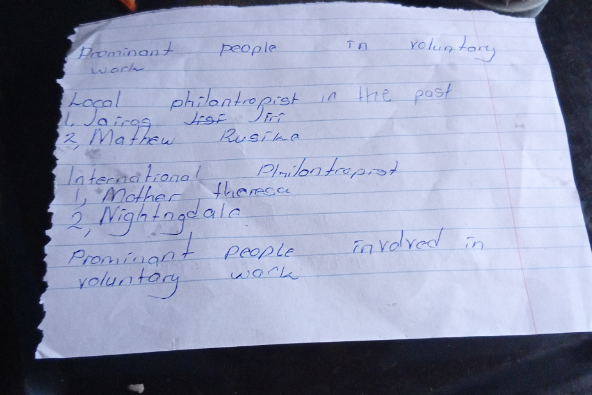 Prominant people in voluntary
work
Local philantropist in the past
1. Jairos Jiri
2, Mathew Rusika
International Philantropist
1, Mother thereca
2, Nightngdale
Prominant people involved in
voluntary work